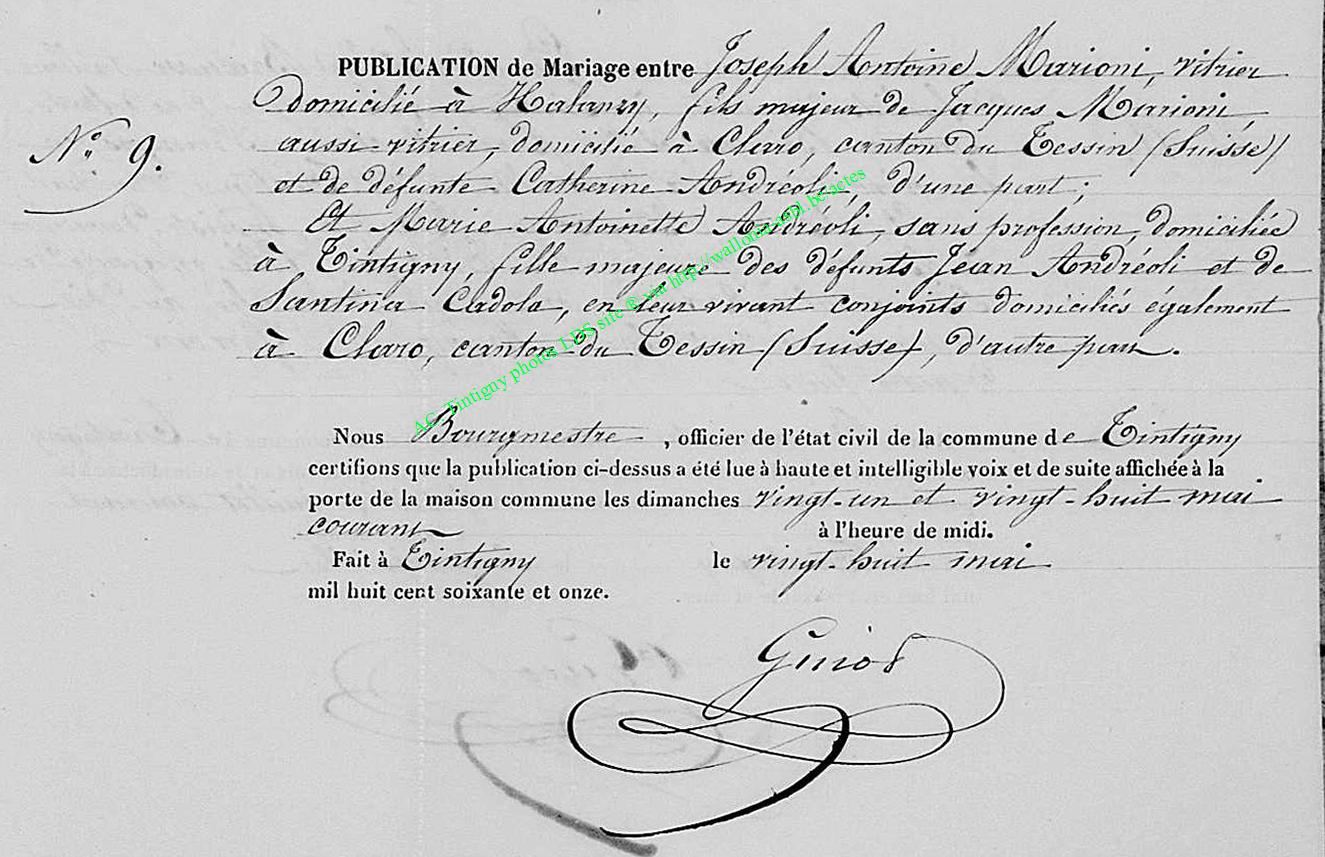 PUBLICATION de Mariage entre Joseph Antoine Marioni, vitrier
domicilié à Halanzy, fils majeur de Jacques Marioni,
N° 9.
aussi vitrier, domicilié à Claro, canton du Tessin (Suisse)
et de défunte Catherine Andréoli, d'une part;
Et Marie Antoinette Andréoli, sans profession, domiciliée
à Tintigny, fille majeure des défunts Jean Andréoli et de
Santina Cadola, en leur vivant conjoints domiciliés également
à Claro, canton du Tessin (Suisse), d'autre part.
AC Tintigny photos LDS site ® via http://wallonia-asbl.be/actes
Nous Bourgmestre, officier de l'état civil de la commune de Tintigny
certifions que la publication ci-dessus a été lue à haute et intelligible voix et de suite affichée à la
porte de la maison commune les dimanches vingt-un et vingt-huit mai
courant à l'heure de midi.
Fait à Tintigny le vingt-huit mai
mil huit cent soixante et onze.